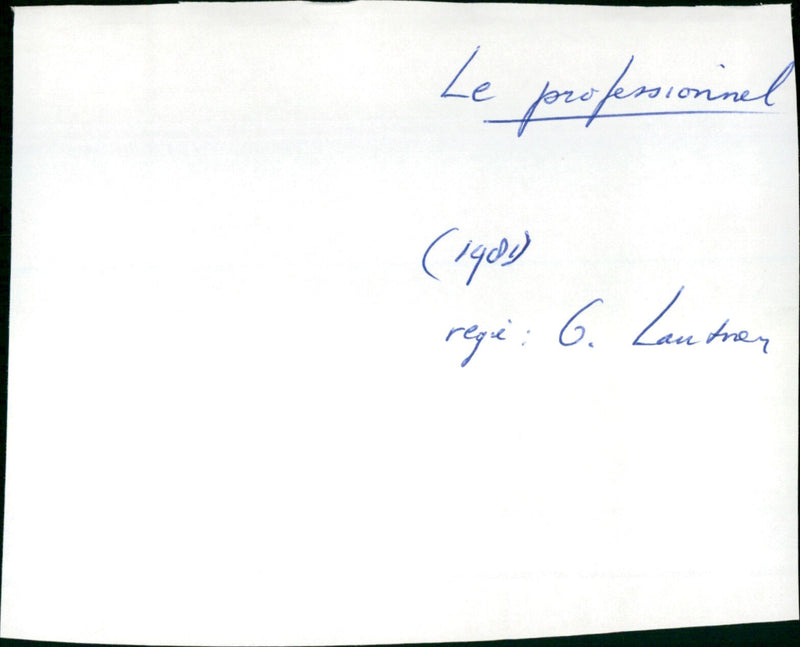 Le professionnel
(1981)
regi: G. Lautner